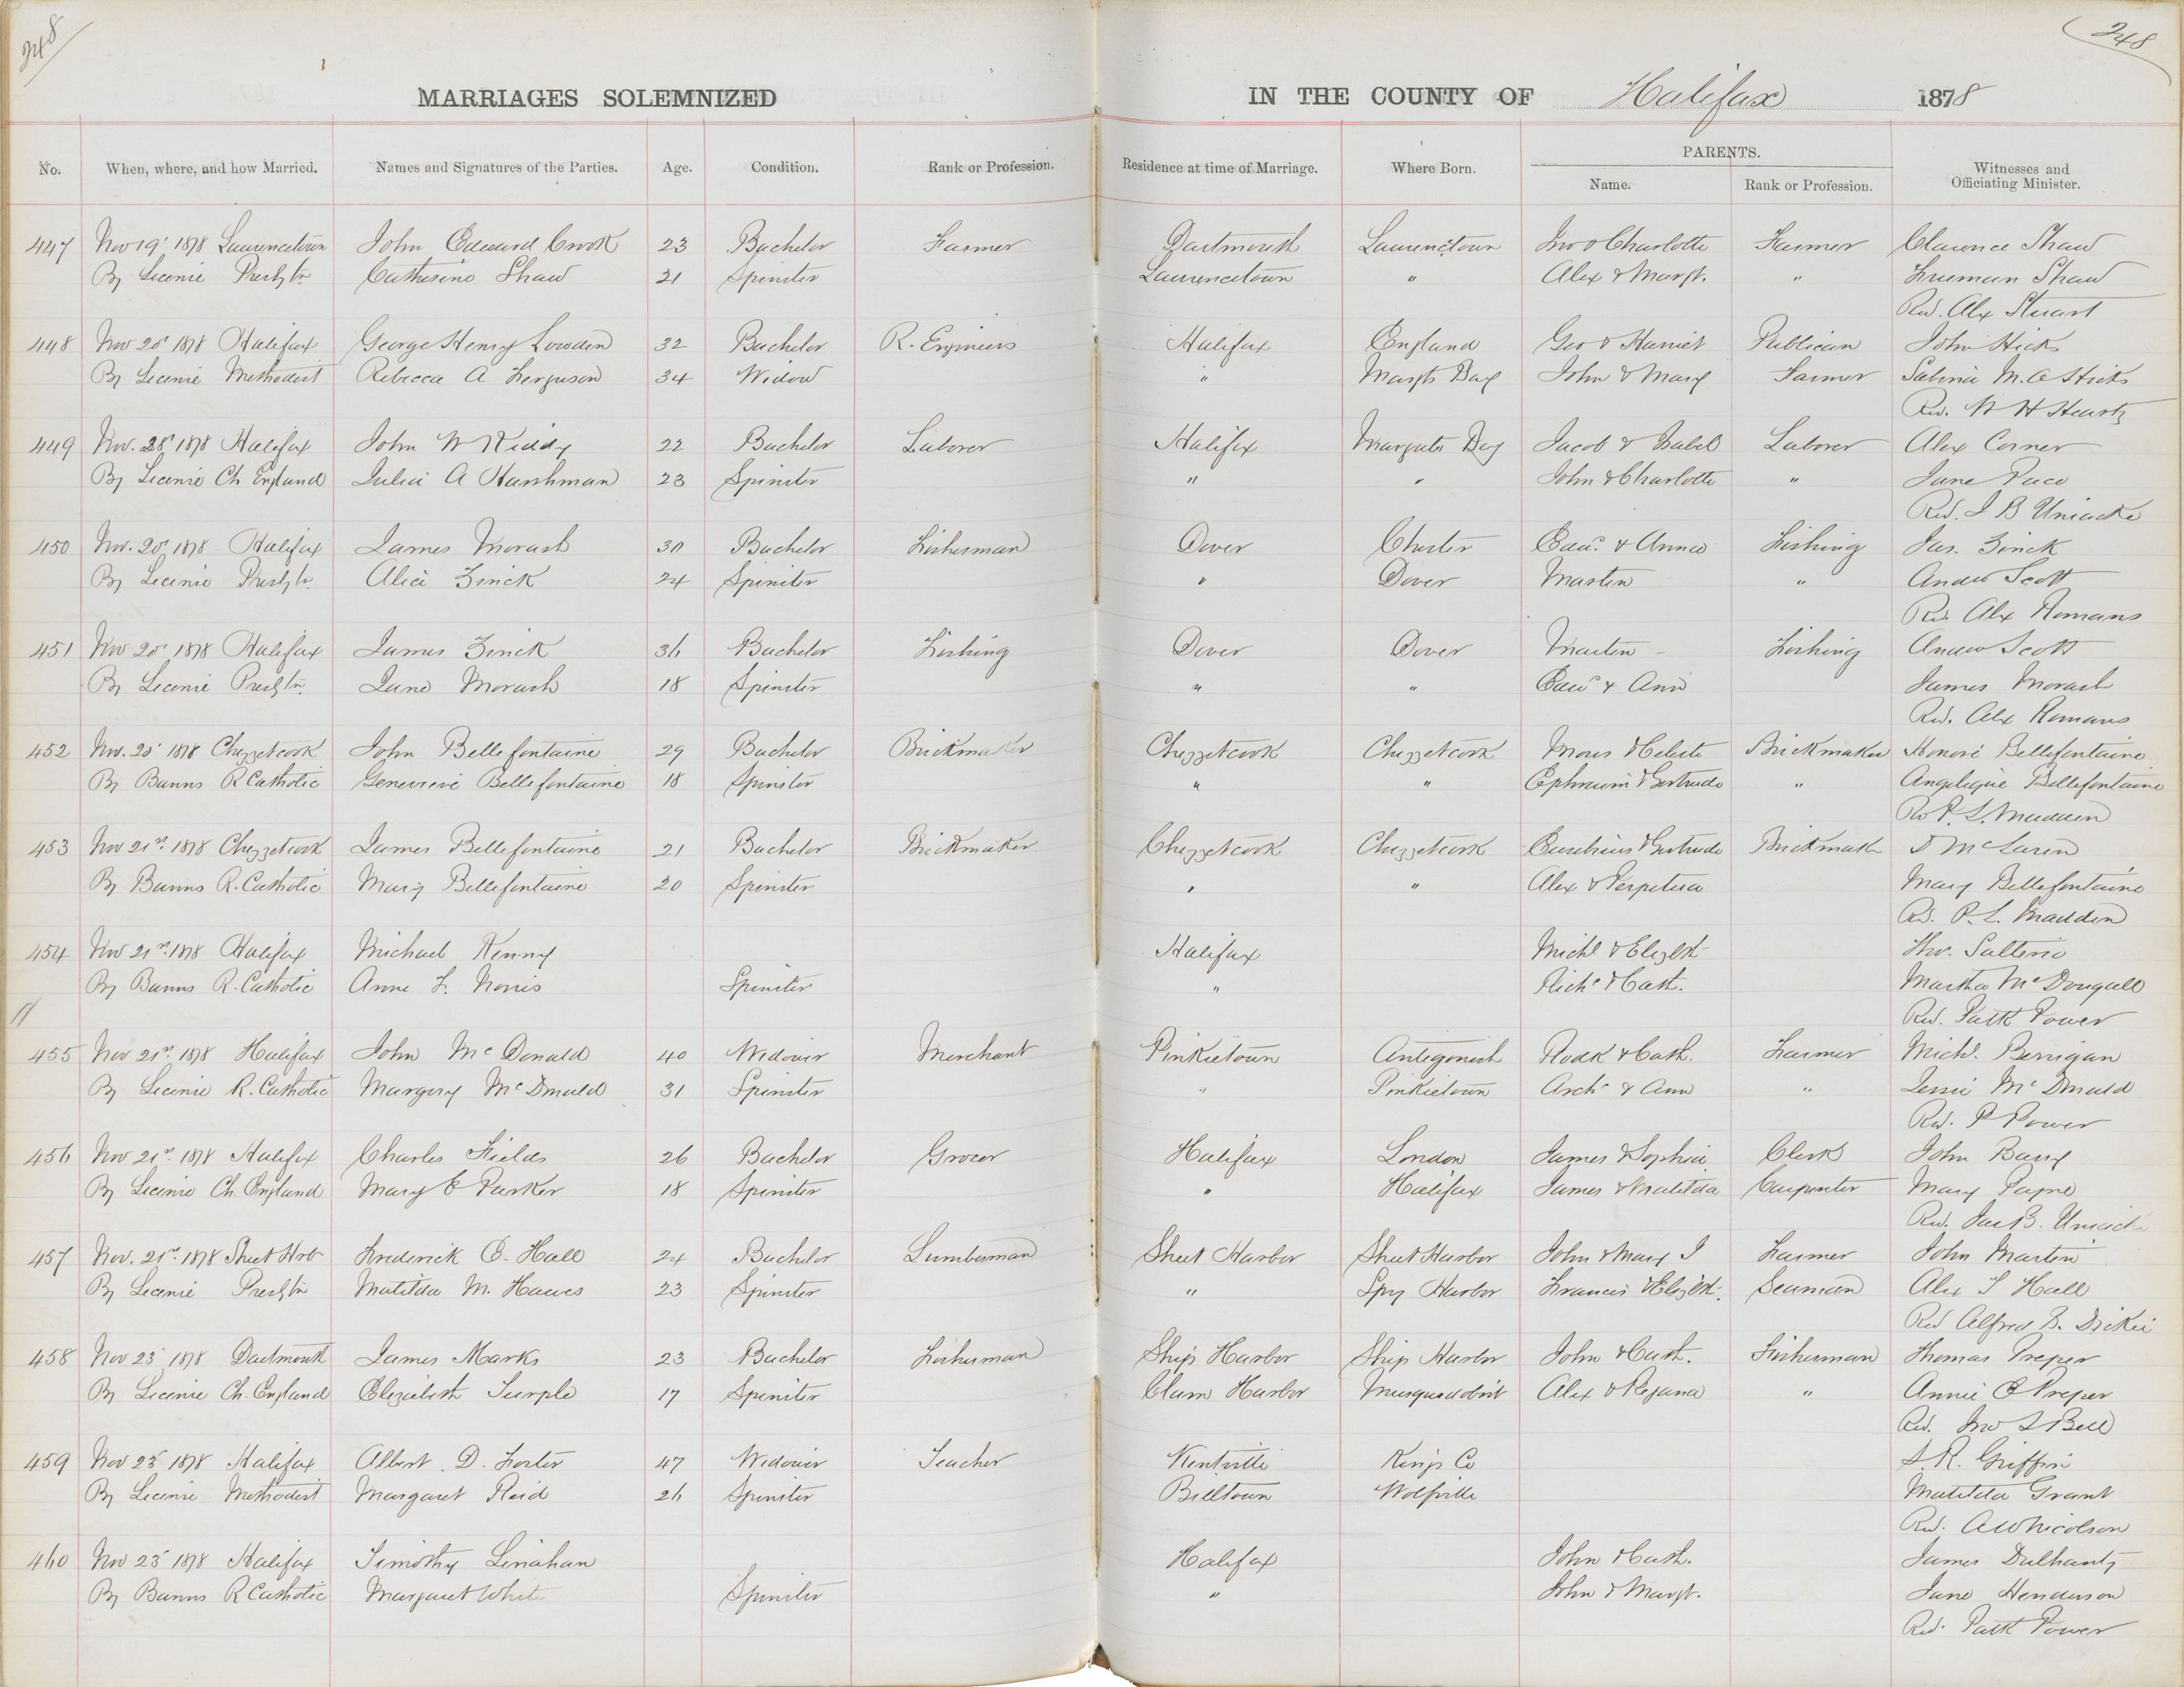 248
248
MARRIAGES SOLEMNIZED IN THE COUNTY OF Halifax 1878
No. When, where, and how Married. Names and Signatures of the Parties. Age. Condition. Rank or Profession. Residence at time of Marriage. Where Born. PARENTS. Name. Rank or Profession. Witnesses and Officiating Minister.
447 Nov 19 1878 Laurencetown John Edward Crook 23 Bachelor Farmer Dartmouth Laurencetown Jno & Charlotte Farmer Clarence Shaw
By Licence Presbtn Catherine Shaw 21 Spinster Laurencetown " Alex & Margt. " Freeman Shaw
Rev. Alex Stuart
448 Nov 20 1878 Halifax George Henry Lowden 32 Bachelor R. Engineers Halifax England Geo & Harriet Publican John Hicks
By Licence Methodist Rebecca A Ferguson 34 Widow " Margts Bay John & Mary Farmer Salina M. A Hicks
Rev. W H Heartz
449 Nov. 28 1878 Halifax John W Kiddy 22 Bachelor Laborer Halifax Margrets Bay Jacob & Isabel Laborer Alex Corner
By Licence Ch England Julia A Harshman 23 Spinster " " John & Charlotte " Jane Pace
Rev. J B Uniacke
450 Nov. 20 1878 Halifax James Morash 30 Bachelor Fisherman Dover Chester Edwd. & Anna Fishing Jas. Zinck
By Licence Presbtn. Alice Zinck 24 Spinster " Dover Martin " Andw Scott
Rev. Alex Romans
451 Nov 20 1878 Halifax James Zinck 36 Bachelor Fishing Dover Dover Martin - Fishing Andw Scott
By Licence Presbtn. Jane Morash 18 Spinster " " Edwd & Ann James Morash
Rev. Alex Romans
452 Nov. 20 1878 Chezzetcook John Bellefontaine 29 Bachelor Brickmaker Chezzetcook Chezzetcook Moses & Celeste Brickmaker Honoré Bellefontaine
By Banns R Catholic Genevieve Bellefontaine 18 Spinster " " Ephraim & Gertrude " Angelique Bellefontaine
Rev P. L. Madden
453 Nov 21st 1878 Chezzetcook James Bellefontaine 21 Bachelor Brickmaker Chezzetcook Chezzetcook Eusebius & Gertrude Brickmaker D McLaren
By Banns R. Catholic Mary Bellefontaine 20 Spinster " " Alex & Perpetua Mary Bellefontaine
Rev. P. L. Madden
454 Nov 21st 1878 Halifax Michael Kenny Halifax Michl & Elizbt Tho. Salterio
By Banns R. Catholic Anne F. Norris Spinster " Richd & Cath. Martha McDougall
Rev. Patk Power
455 Nov 21st 1878 Halifax John McDonald 40 Widower Merchant Pinkietown Antigonish Rodk & Cath. Farmer Michl. Berrigan
By Licence R. Catholic Margery McDonald 31 Spinster " Pinkietown Archd & Ann " Jessie McDonald
Rev. P Power
456 Nov 21st 1878 Halifax Charles Fields 26 Bachelor Grocer Halifax London James & Sophia Clerk John Barry
By Licence Ch. England Mary E Parker 18 Spinster " Halifax James & Matilda Carpenter Mary Payne
Rev. Jas B. Uniacke
457 Nov. 21st 1878 Sheet Hrbr Frederick B. Hall 24 Bachelor Lumberman Sheet Harbor Sheet Harbor John & Mary J Farmer John Martin
By Licence Presbtn Matilda M. Hawes 23 Spinster " Spry Harbor Francis & Elizbt. Seaman Alex J Hall
Rev Alfred B. Dickie
458 Nov 23 1878 Dartmouth James Marks 23 Bachelor Fisherman Ship Harbor Ship Harbor John & Cath. Fisherman Thomas Preper
By Licence Ch. England Elizabeth Turple 17 Spinster Clam Harbor Musquodobit Alex & Rejana " Annie E Preper
Rev. Jno L Bell
459 Nov 23 1878 Halifax Albert D. Foster 47 Widower Teacher Kentville Kings Co S. R. Griffin
By Licence Methodist Margaret Reid 26 Spinster Billtown Wolfville Matilda Grant
Rev. A W Nicolson
460 Nov 23 1878 Halifax Timothy Linahan Halifax John & Cath. James Dulhanty
By Banns R Catholic Margaret White Spinster " John & Margt. Jane Henderson
Rev. Patk Power